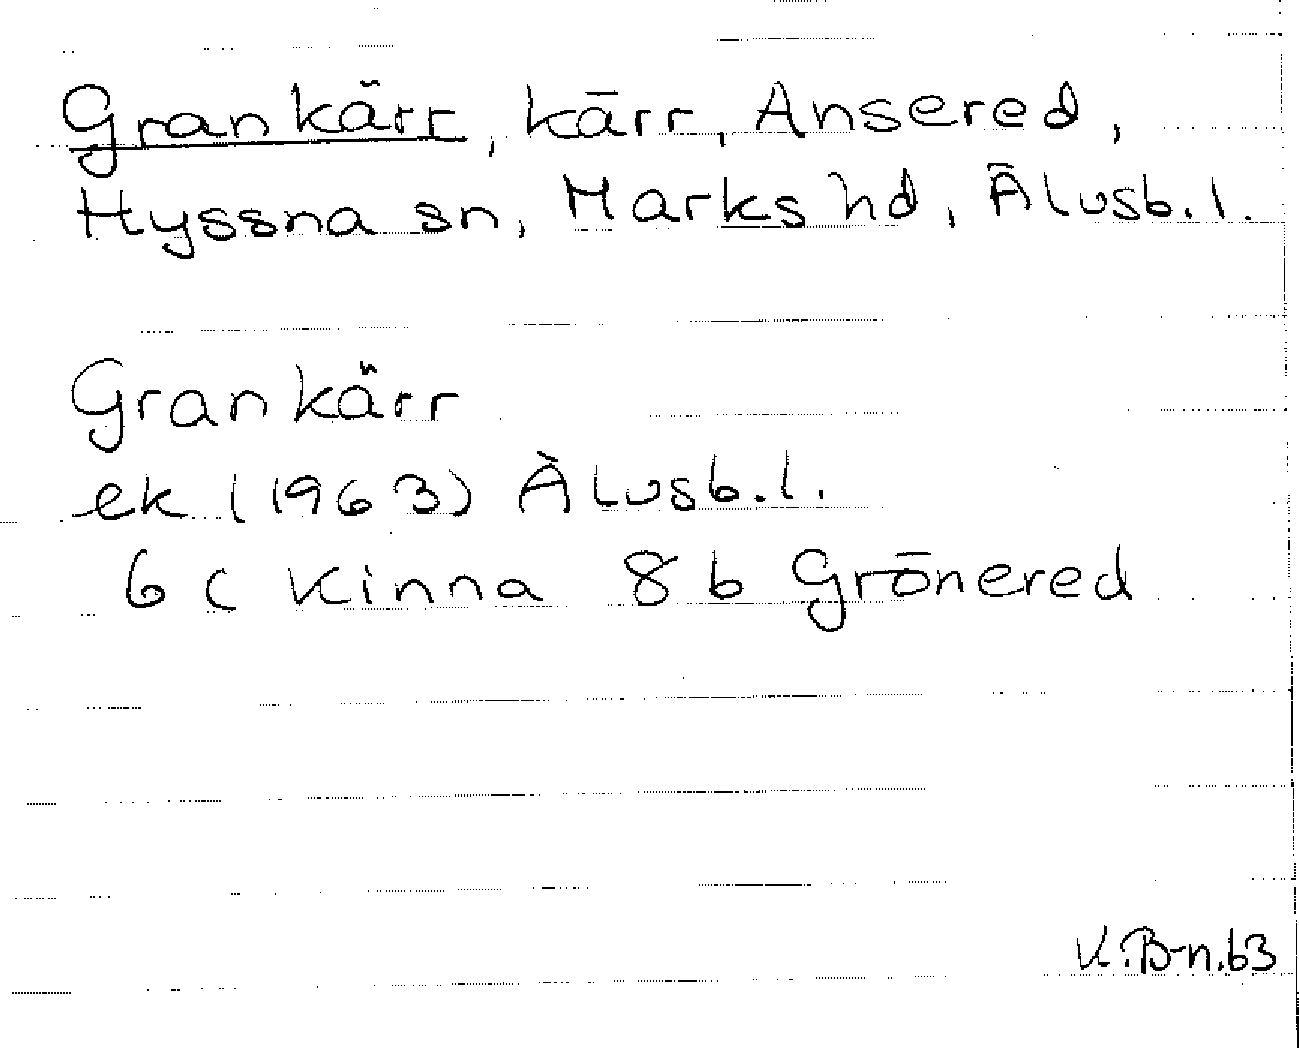 Grankärr, kärr, Ansered,
Hyssna sn, Marks hd, Älvsb. l.
Grankärr
ek (1963) Älvsb. l.
6 c Kinna 8 b Grönered
K. B-n. 63